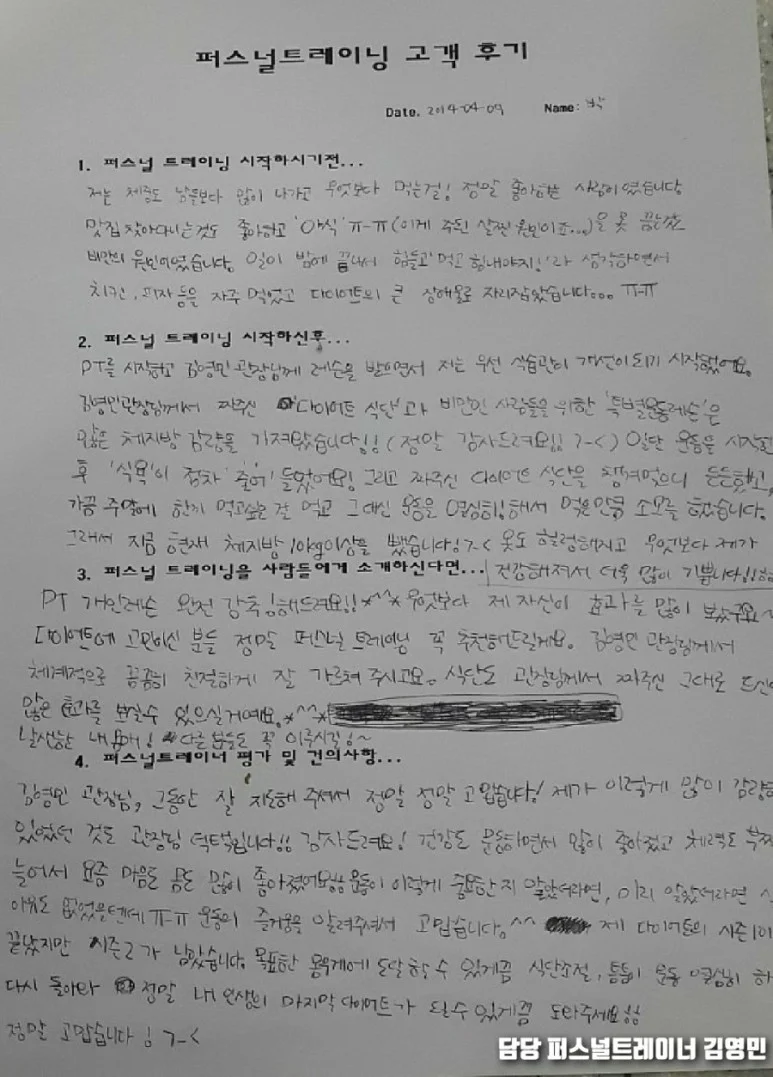 퍼스널트레이닝 고객 후기
Date. 2014-04-09 Name: 박
1. 퍼스널 트레이닝 시작하시기전...
저는 체중도 남들보다 많이 나가고 무엇보다 먹는걸! 정말 좋아하는 사람이였습니다
맛집 찾아다니는것도 좋아하고 '야식' ㅠ-ㅠ (이게 주된 살찐 원인이죠...)을 못 끊는것도
비만의 원인이였습니다. 일이 밤에 끝나서 힘들고 '먹고 힘내야지!' 라 생각하면서
치킨, 피자 등을 자주 먹었고 다이어트의 큰 장애물로 자리잡았습니다... ㅠ-ㅠ
2. 퍼스널 트레이닝 시작하신후...
PT를 시작하고 김영민 관장님께 레슨을 받으면서 저는 우선 식습관이 개선이 되기 시작했어요.
김영민관장님께서 짜주신 '다이어트 식단'과 비만인 사람들을 위한 '특별운동레슨'은
많은 체지방 감량을 가져왔습니다!! (정말 감사드려요!! ㄱ-<) 일단 운동을 시작한
후 '식욕'이 점차 '줄어' 들었어요! 그리고 짜주신 다이어트 식단을 챙겨먹으니 든든했고,
가끔 주말에 한끼 먹고싶은 걸 먹고 그대신 운동을 열심히! 해서 먹은만큼 소모를 했습니다.
그래서 지금 현재 체지방 10kg이상을 뺐습니다! ㄱ-< 옷도 헐렁해지고 무엇보다 제가
3. 퍼스널 트레이닝을 사람들에게 소개하신다면... 건강해져서 더욱 많이 기쁩니다!!
PT 개인레슨 완전 강추!해드려요!! *^^* 무엇보다 제 자신이 효과를 많이 봤구요~
다이어트에 고민이신 분들 정말 퍼스널 트레이닝 꼭 추천해드릴게요. 김영민 관장님께서
체계적으로 꼼꼼히 친절하게 잘 가르쳐 주시고요. 식단도 관장님께서 짜주신 그대로 드신다
많은 효과를 보실수 있으실거예요. *^^*
날씬한 내 몸매! 다른분들도 꼭 이루시길!~
4. 퍼스널트레이너 평가 및 건의사항...
김영민 관장님, 그동안 잘 지도해 주셔서 정말 정말 고맙습니다! 제가 이렇게 많이 감량할
있었던 것도 관장님 덕택입니다!! 감사드려요! 건강도 운동하면서 많이 좋아졌고 체력도 부쩍
늘어서 요즘 마음도 몸도 많이 좋아졌어요!! 운동이 이렇게 중요한지 알았더라면, 미리 알았더라면
아픔도 없었을텐데 ㅠ-ㅠ 운동의 즐거움을 알려주셔서 고맙습니다. ^^ 제 다이어트의 시즌1이
끝났지만 시즌2가 남았습니다. 목표한 몸무게에 도달할 수 있게끔 식단조절, 틈틈이 운동 열심히 하
다시 돌아와 정말 내 인생의 마지막 다이어트가 될 수 있게끔 도와주세요!!
정말 고맙습니다! ㄱ-<
담당 퍼스널트레이너 김영민